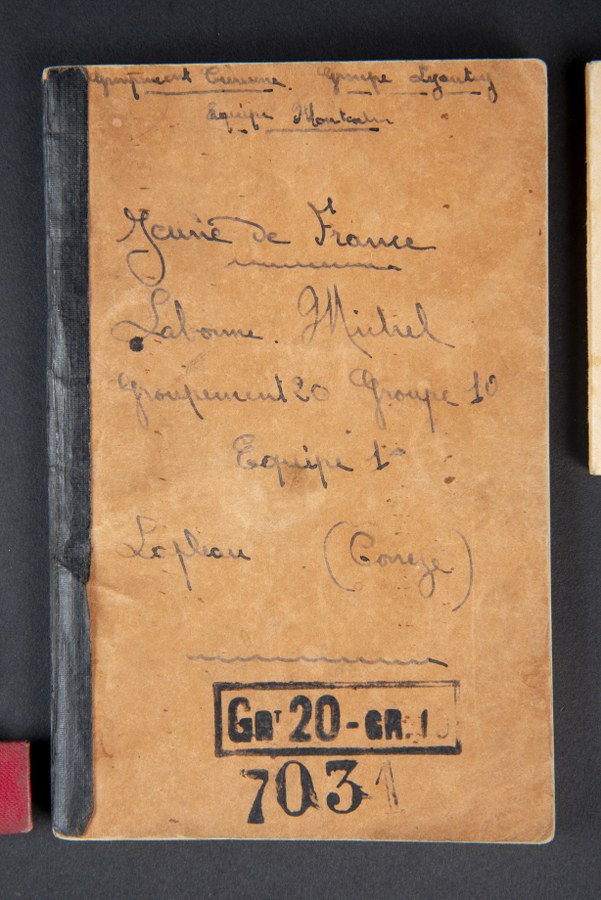 Groupement Turenne. Groupe Lyautey
Equipe Montcalm
Jeune de France
Labonne. Michel
Groupement 20 Groupe 10
Equipe 1
Lapleau (Corrèze)
GRT 20 - GR. 10
7031